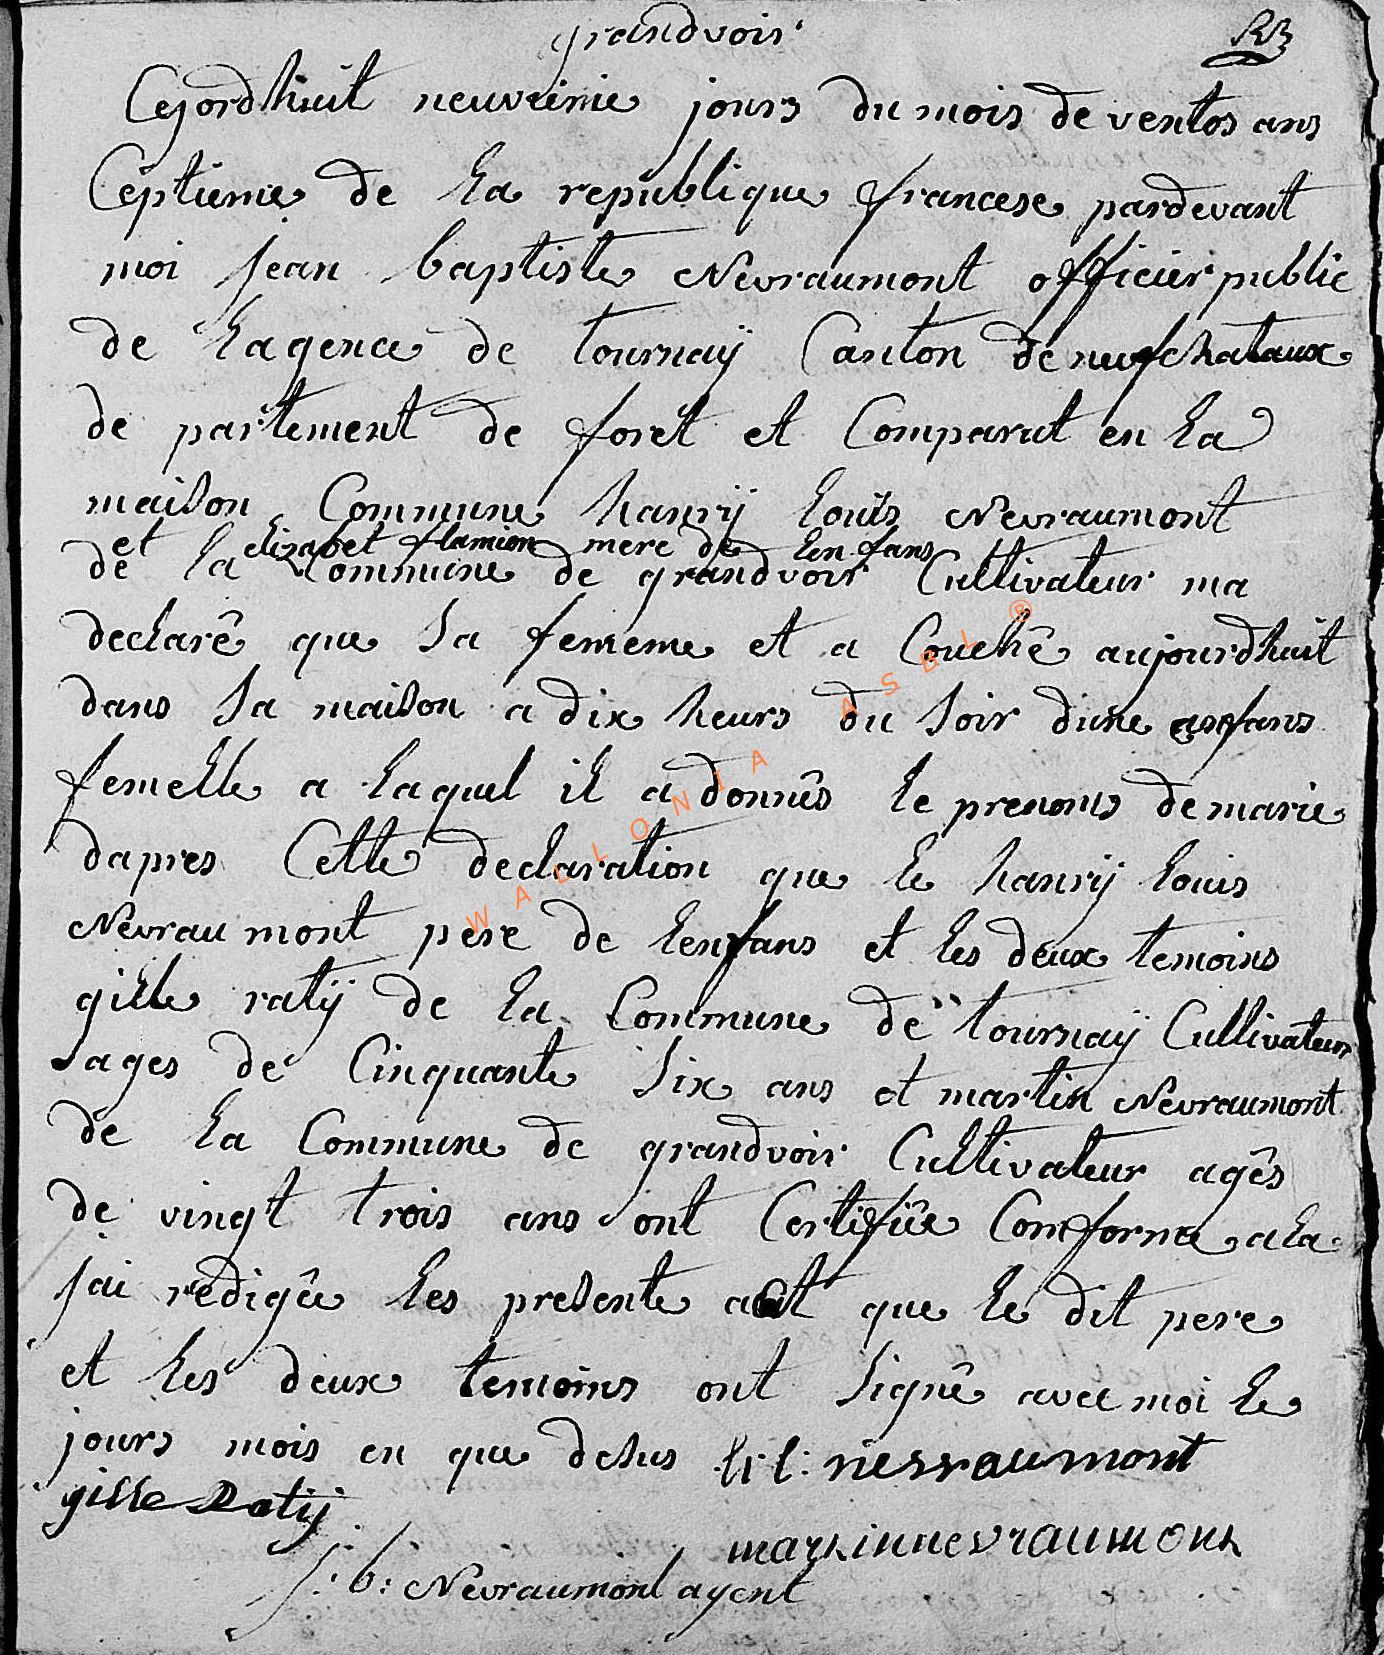 grandvoir
Cejordhuit neuvieme jours du mois de ventos ans
Ceptieme de la republique francese pardevant
moi jean baptiste Nevraumont officier public
de lagence de tournaÿ Canton de neufchataux
de partement de foret et Comparut en la
maison Commune hanrÿ louis Nevraumont
et elizabet flamion mere de lenfans
de la Commune de grandvoir Cultivateur ma
declarê que sa fememe et a Couchê aujourdhuit
dans sa maison a dix heurs du soir dune enfans
femelle a laquel il a donnês le prenoms de marie
dapres Cette declaration que le hanrÿ louis
Nevraumont pere de lenfans et les deux temoins
gille ratÿ de la Commune de tournaÿ Cultivateur
ages de Cinquante six ans et martin Nevraumont
de la Commune de grandvoir Cultivateur agês
de vingt trois ans ont Certifiêe Comforme a la
jai redigêe les presente act que le dit pere
et les deux temoins ont signê avec moi le
jours mois en que desus h: l: nevraumont
gille Ratij
martin nevraumont
j: b: Nevraumont agent
WALLONIA ASBL ®